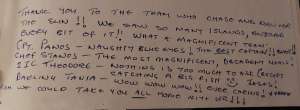 THANK YOU TO THE TEAM WHO CHASE AND RUN FOR
THE SUN!! WE SAW SO MANY ISLANDS, ENJOYED
EVERY BIT OF IT!! WHAT A MAGNIFICENT TEAM!
CPT. PANOS - NAUGHTY BLUE EYES! THE BEST CAPTAIN!!
CHEF STANOS - THE MOST MAGNIFICENT, DECADENT MEALS!
THEODORE - NOTHING IS TOO MUCH TO ASK (EXCEPT
CATCHING A BIG FISH!)
DARLING TANIA - WOW WOW WOW!! EVER CARING!
WE COULD TAKE YOU ALL HOME WITH US!!!